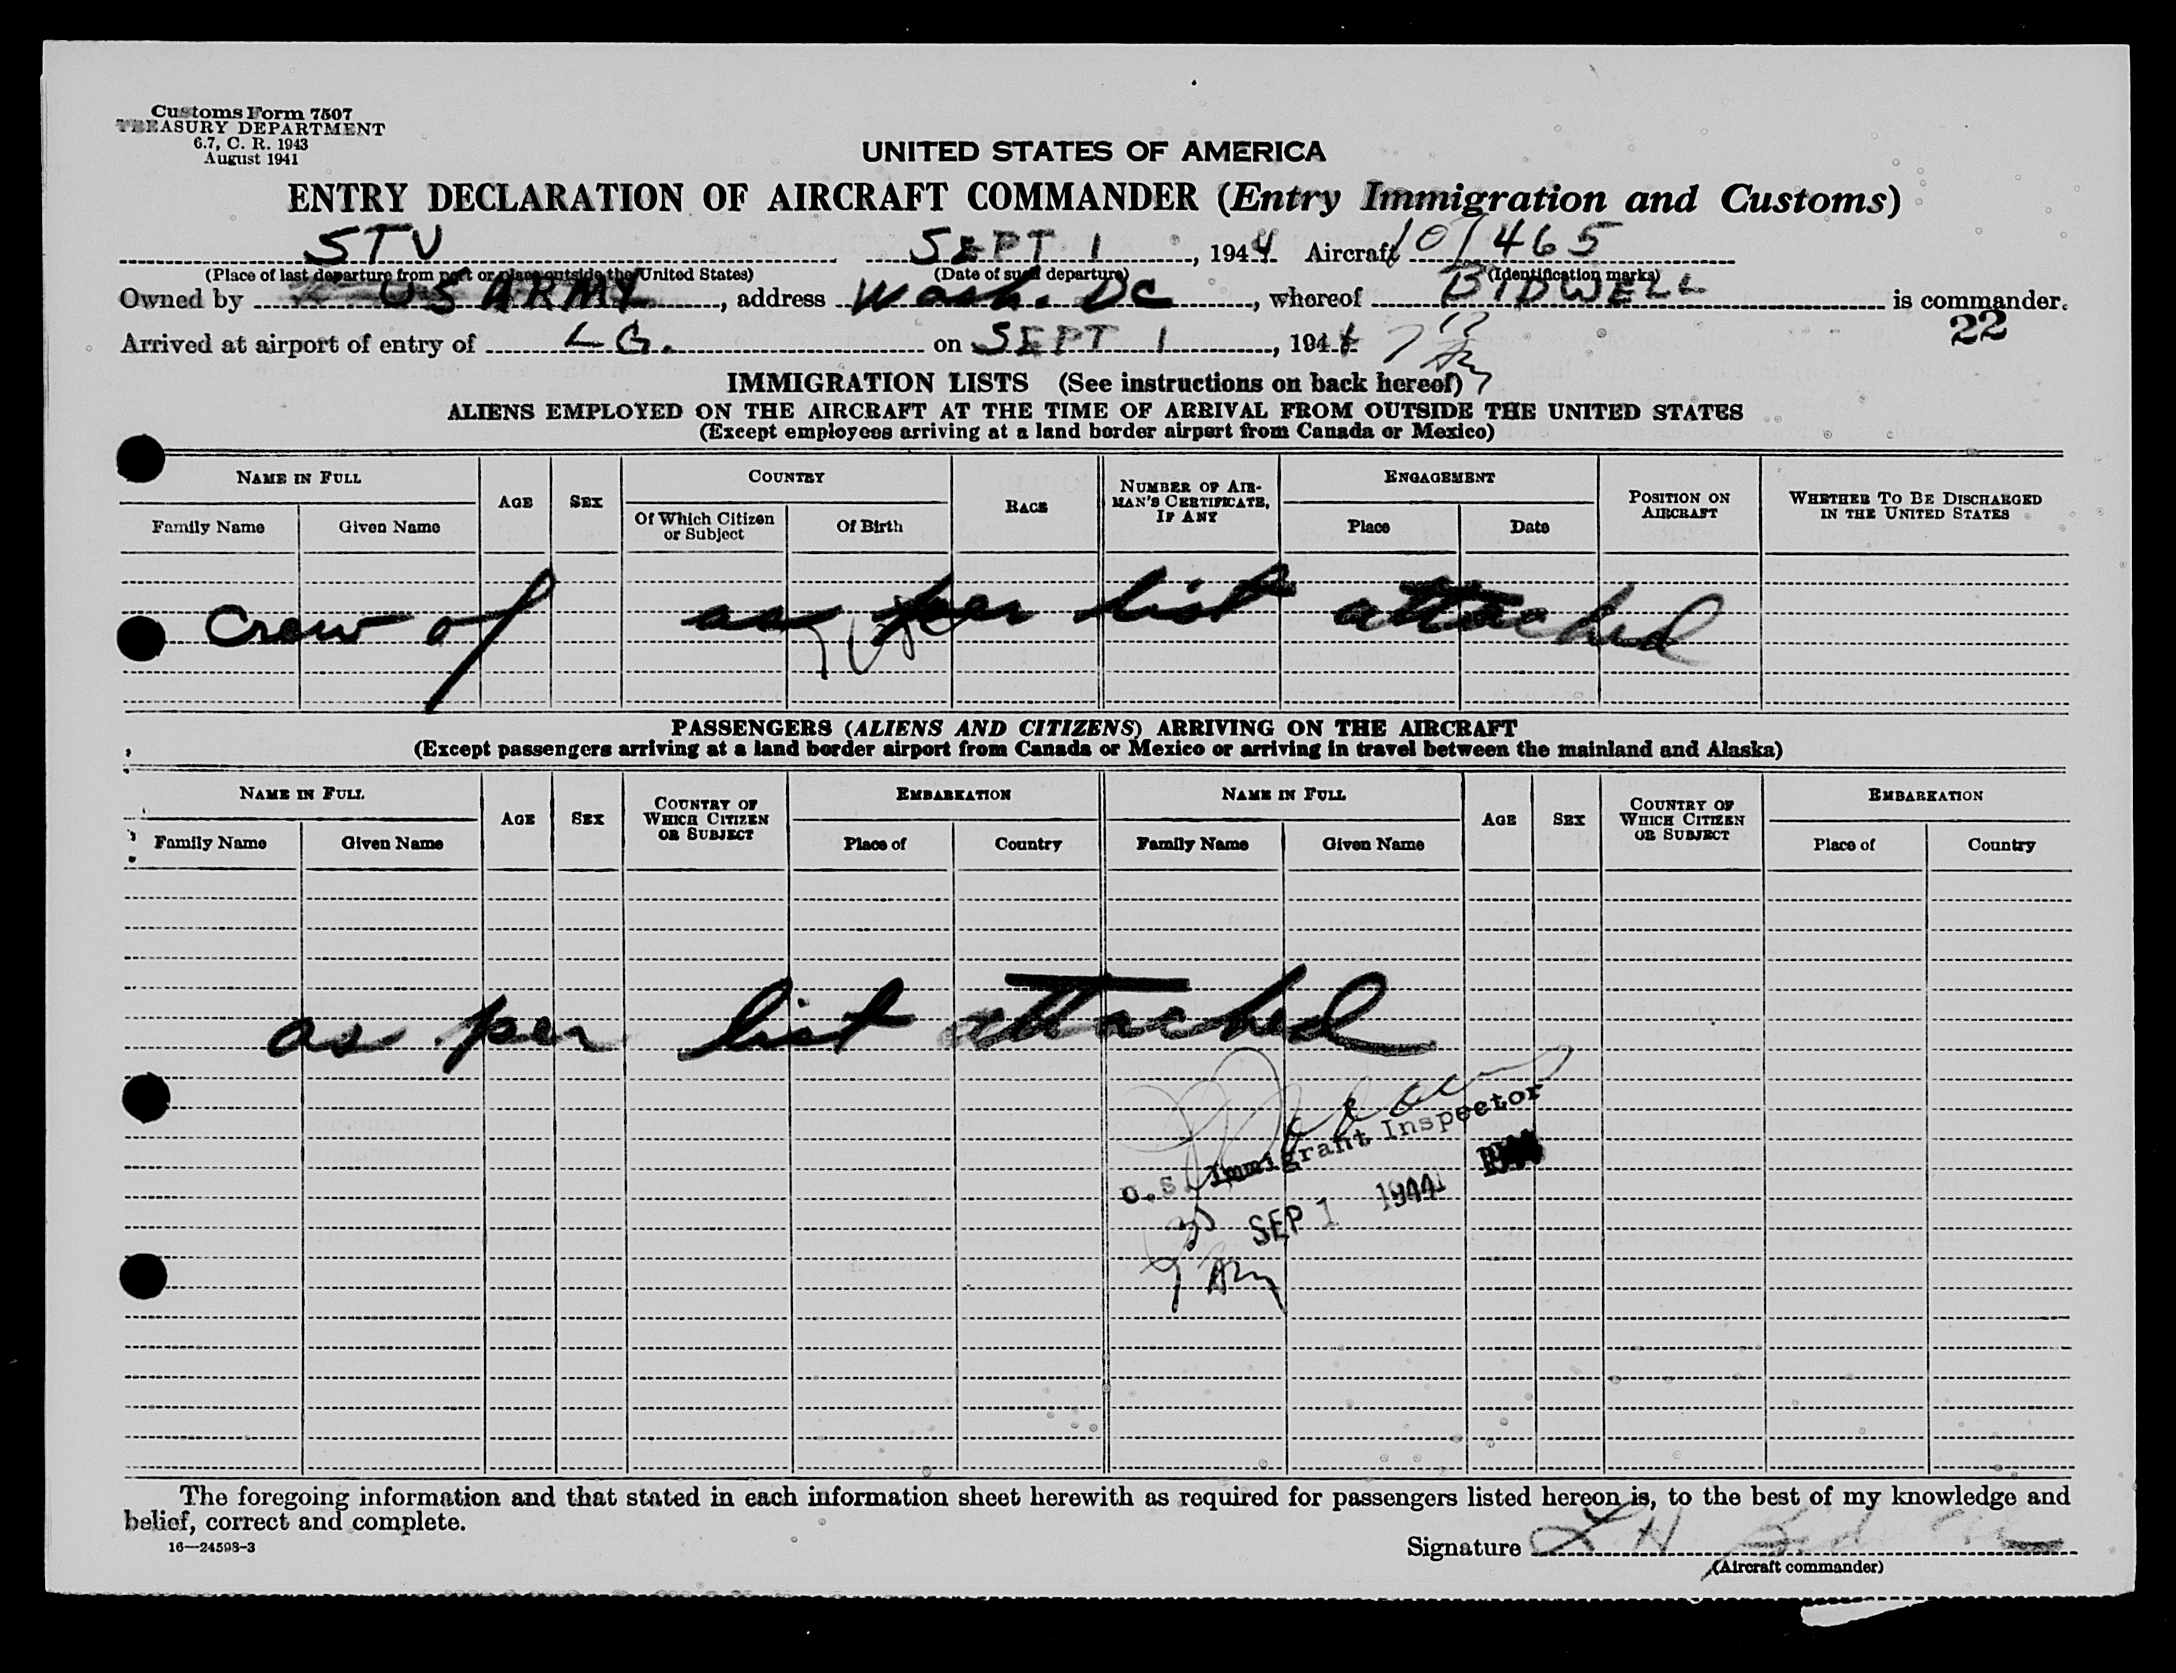 Customs Form 7507
TREASURY DEPARTMENT
6.7, C. R. 1943
August 1941
UNITED STATES OF AMERICA
ENTRY DECLARATION OF AIRCRAFT COMMANDER (Entry Immigration and Customs)
STV SEPT 1, 1944 Aircraft 107465
(Place of last departure from port or place outside the United States) (Date of such departure) (Identification marks)
Owned by US ARMY, address Wash. DC, whereof BIDWELL is commander.
Arrived at airport of entry of L G. on SEPT 1, 1944
22
IMMIGRATION LISTS (See instructions on back hereof)
ALIENS EMPLOYED ON THE AIRCRAFT AT THE TIME OF ARRIVAL FROM OUTSIDE THE UNITED STATES
(Except employees arriving at a land border airport from Canada or Mexico)
NAME IN FULL AGE SEX COUNTRY RACE NUMBER OF AIRMAN'S CERTIFICATE, IF ANY ENGAGEMENT POSITION ON AIRCRAFT WHETHER TO BE DISCHARGED IN THE UNITED STATES
Family Name Given Name Of Which Citizen or Subject Of Birth Place Date
Crew of as per list attached
PASSENGERS (ALIENS AND CITIZENS) ARRIVING ON THE AIRCRAFT
(Except passengers arriving at a land border airport from Canada or Mexico or arriving in travel between the mainland and Alaska)
NAME IN FULL AGE SEX COUNTRY OF WHICH CITIZEN OR SUBJECT EMBARKATION NAME IN FULL AGE SEX COUNTRY OF WHICH CITIZEN OR SUBJECT EMBARKATION
Family Name Given Name Place of Country Family Name Given Name Place of Country
as per list attached
U.S. Immigrant Inspector
SEP 1 1944
The foregoing information and that stated in each information sheet herewith as required for passengers listed hereon is, to the best of my knowledge and
belief, correct and complete.
16—24598-3
Signature L H Bidwell
(Aircraft commander)